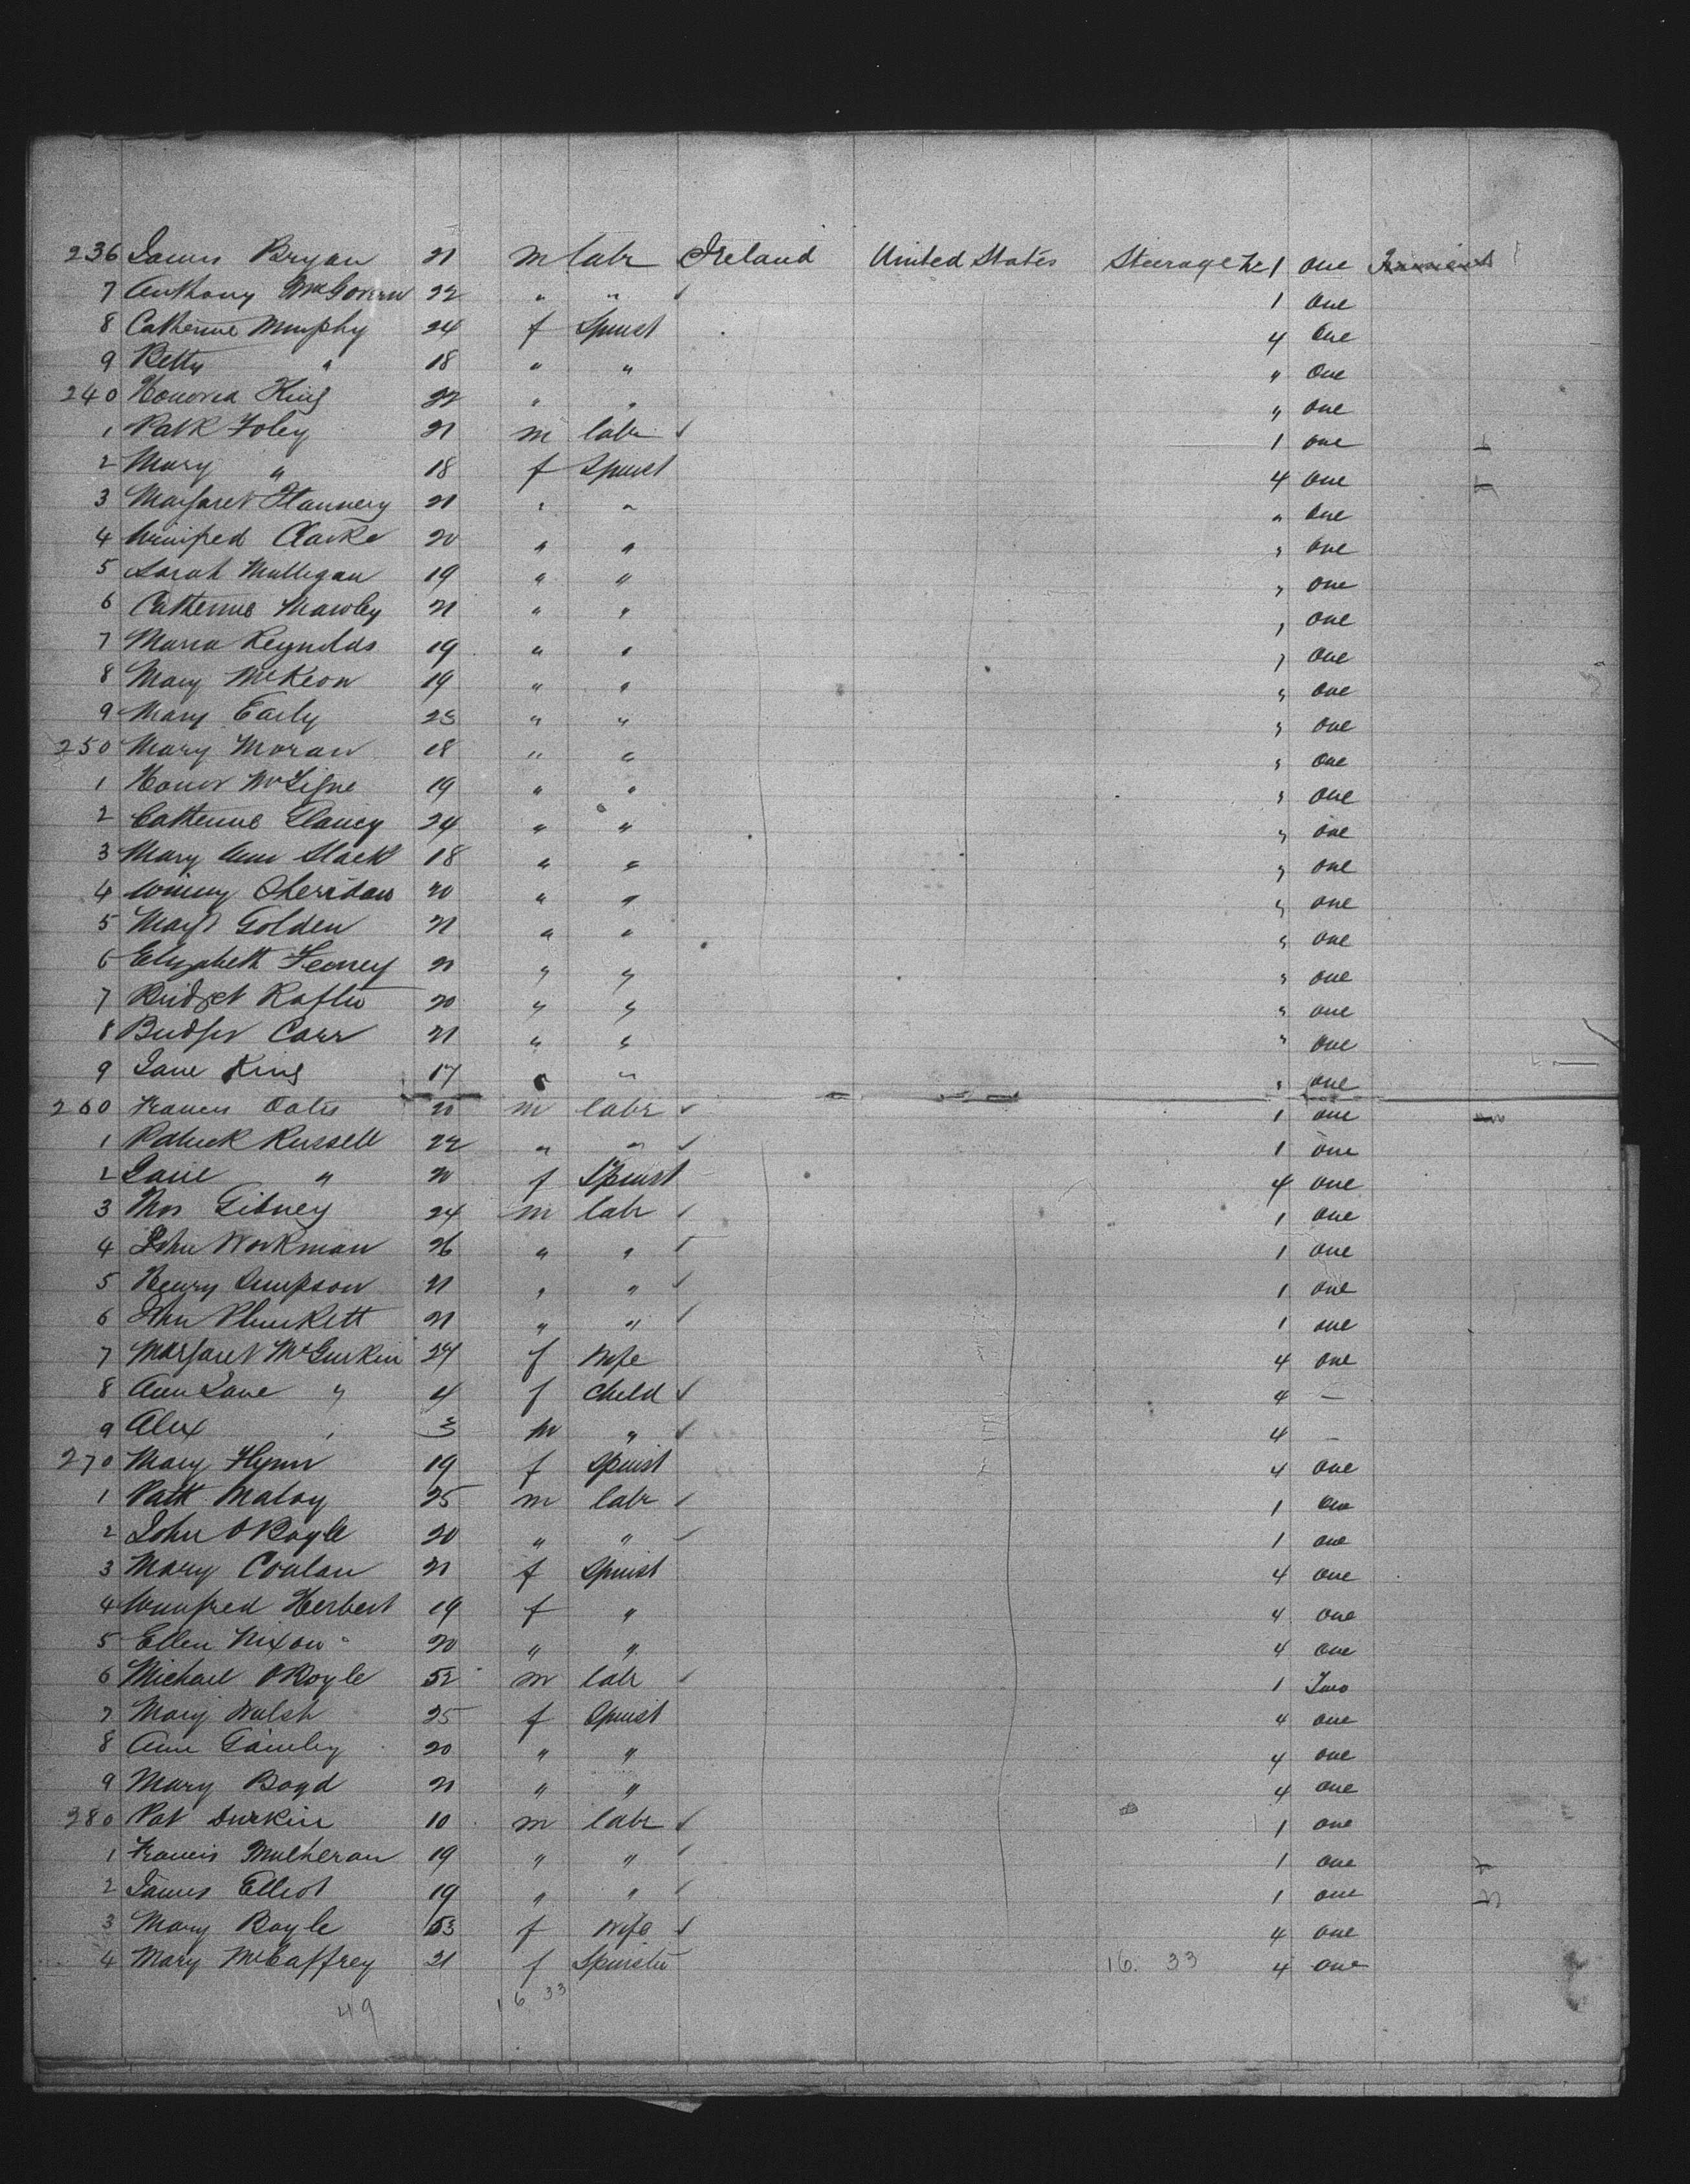 236 James Bryan 21 m labr Ireland United States Steerage No 1 one
7 Anthony McGovern 22 " " ✓ 1 one
8 Catherine Murphy 24 f Spinst 4 one
9 Betty " 18 " " " one
240 Honora King 22 " " " one
1 Patk Foley 21 m labr ✓ 1 one
2 Mary " 18 f Spinst 4 one
3 Margaret Flannery 21 " " " one
4 Winifred Clarke 20 " " " one
5 Sarah Mulligan 19 " " " one
6 Catherine Mawley 21 " " " one
7 Maria Reynolds 19 " " " one
8 Mary McKeon 19 " " " one
9 Mary Early 23 " " " one
250 Mary Moran 18 " " " one
1 Honor 19 " " " one
2 Catherine Clancy 24 " " " one
3 Mary Ann Slack 18 " " " one
4 Winny Sheridan 20 " " " one
5 Margt Golden 21 " " " one
6 Elizabeth Feeney 21 " " " one
7 Bridget 20 " " " one
8 Bridget Carr 21 " " " one
9 Jane King 17 " " " one
260 Francis Oates 20 m labr ✓ 1 one
1 Patrick Russell 22 " " ✓ 1 one
2 Jane " 20 f Spinst 4 one
3 Thos Gibney 24 m labr ✓ 1 one
4 John Workman 26 " " ✓ 1 one
5 Henry Simpson 21 " " ✓ 1 one
6 John Plunkett 21 " " ✓ 1 one
7 Margaret McGurkin 24 f Wife 4 one
8 Ann Jane " 4 f Child ✓ 4 —
9 Alex " 3 m " ✓ 4 —
270 Mary Flynn 19 f Spinst 4 one
1 Patk Maloy 25 m labr ✓ 1 one
2 John OBoyle 20 " " ✓ 1 one
3 Mary Conlan 21 f Spinst 4 one
4 Winifred Herbert 19 f " 4 one
5 Ellen Nixon 20 " " 4 one
6 Michael OBoyle 52 m labr ✓ 1 Two
7 Mary Walsh 25 f Spinst 4 one
8 Ann 20 " " 4 one
9 Mary Boyd 21 " " 4 one
280 Pat Durkin 10 m labr ✓ 1 one
1 Francis Mulheran 19 " " ✓ 1 one
2 James Elliot 19 " " ✓ 1 one
3 Mary Boyle 53 f Wife ✓ 4 one
4 Mary McCaffrey 21 f Spinster 16. 33 4 one
49 16 33